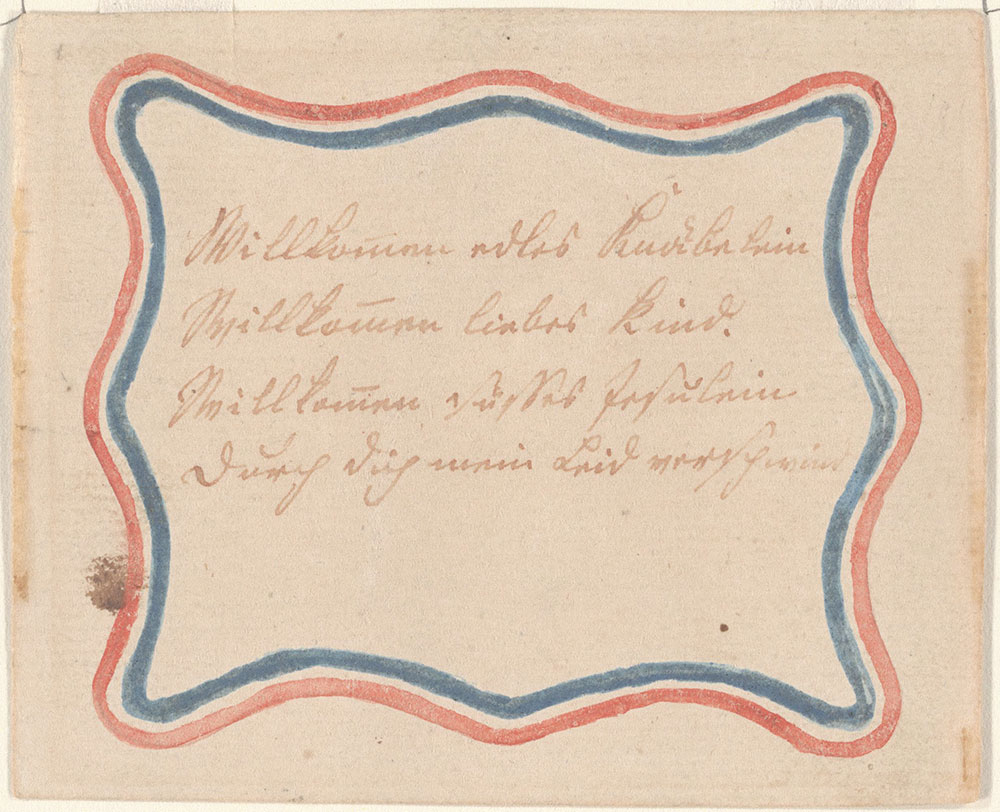 Willkom̅en edles Knäbelein
Willkom̅en liebes Kind.
Willkom̅en süsses Jesulein
Durch dich mein Leid verschwind